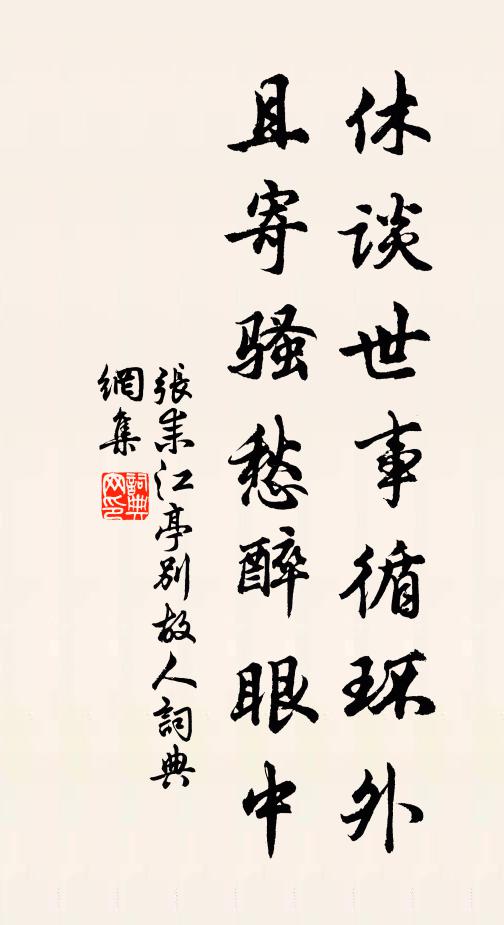 休谈世事循环外
且寄骚愁醉眼中
張耒江亭別故人詞典
網集
詞典
网印